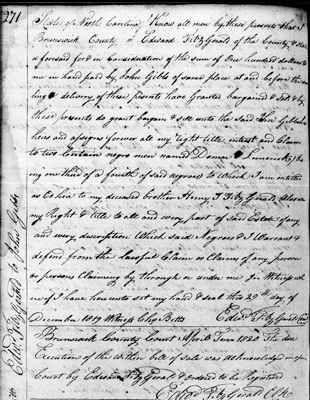 271
State of North Carolina Know all men by these presents that I
Brunswick County Edward Fitz Gerald of the County & State
aforesaid for & in Consideration of the sum of one hundred dollars to
me in hand paid by John Gibbs of same place at and before the
& delivery of these presents have Granted bargained & Sold & by
these presents do grant bargain & sell unto the said John Gibbs his
heirs and assigns forever all my right title interest and Claim
to two Certain negro men named &
my one third of a fourth of said negroes to Which I am intitled
as Coheir to my deceased brother Henry Fitz Gerald, Also
my Right & title to all and every part of said Estate of any
and every description Which said Negroes & I Warrant &
defend from the Lawful Claim or Claims of any person
or persons Claiming by through or under me In Witness wh
ereof I have hereunto set my hand & seal this 29th day of
December 1819 Witness Betts Edwd Fitz Gerald
Brunswick County Court April Term 1820 The due
Execution of the within bill of sale was acknowledged in open
Court by Edward Fitz Gerald & ordered to be Registered
Edwd Fitz Gerald Clk
Edwd Fitz Gerald to John Gibbs